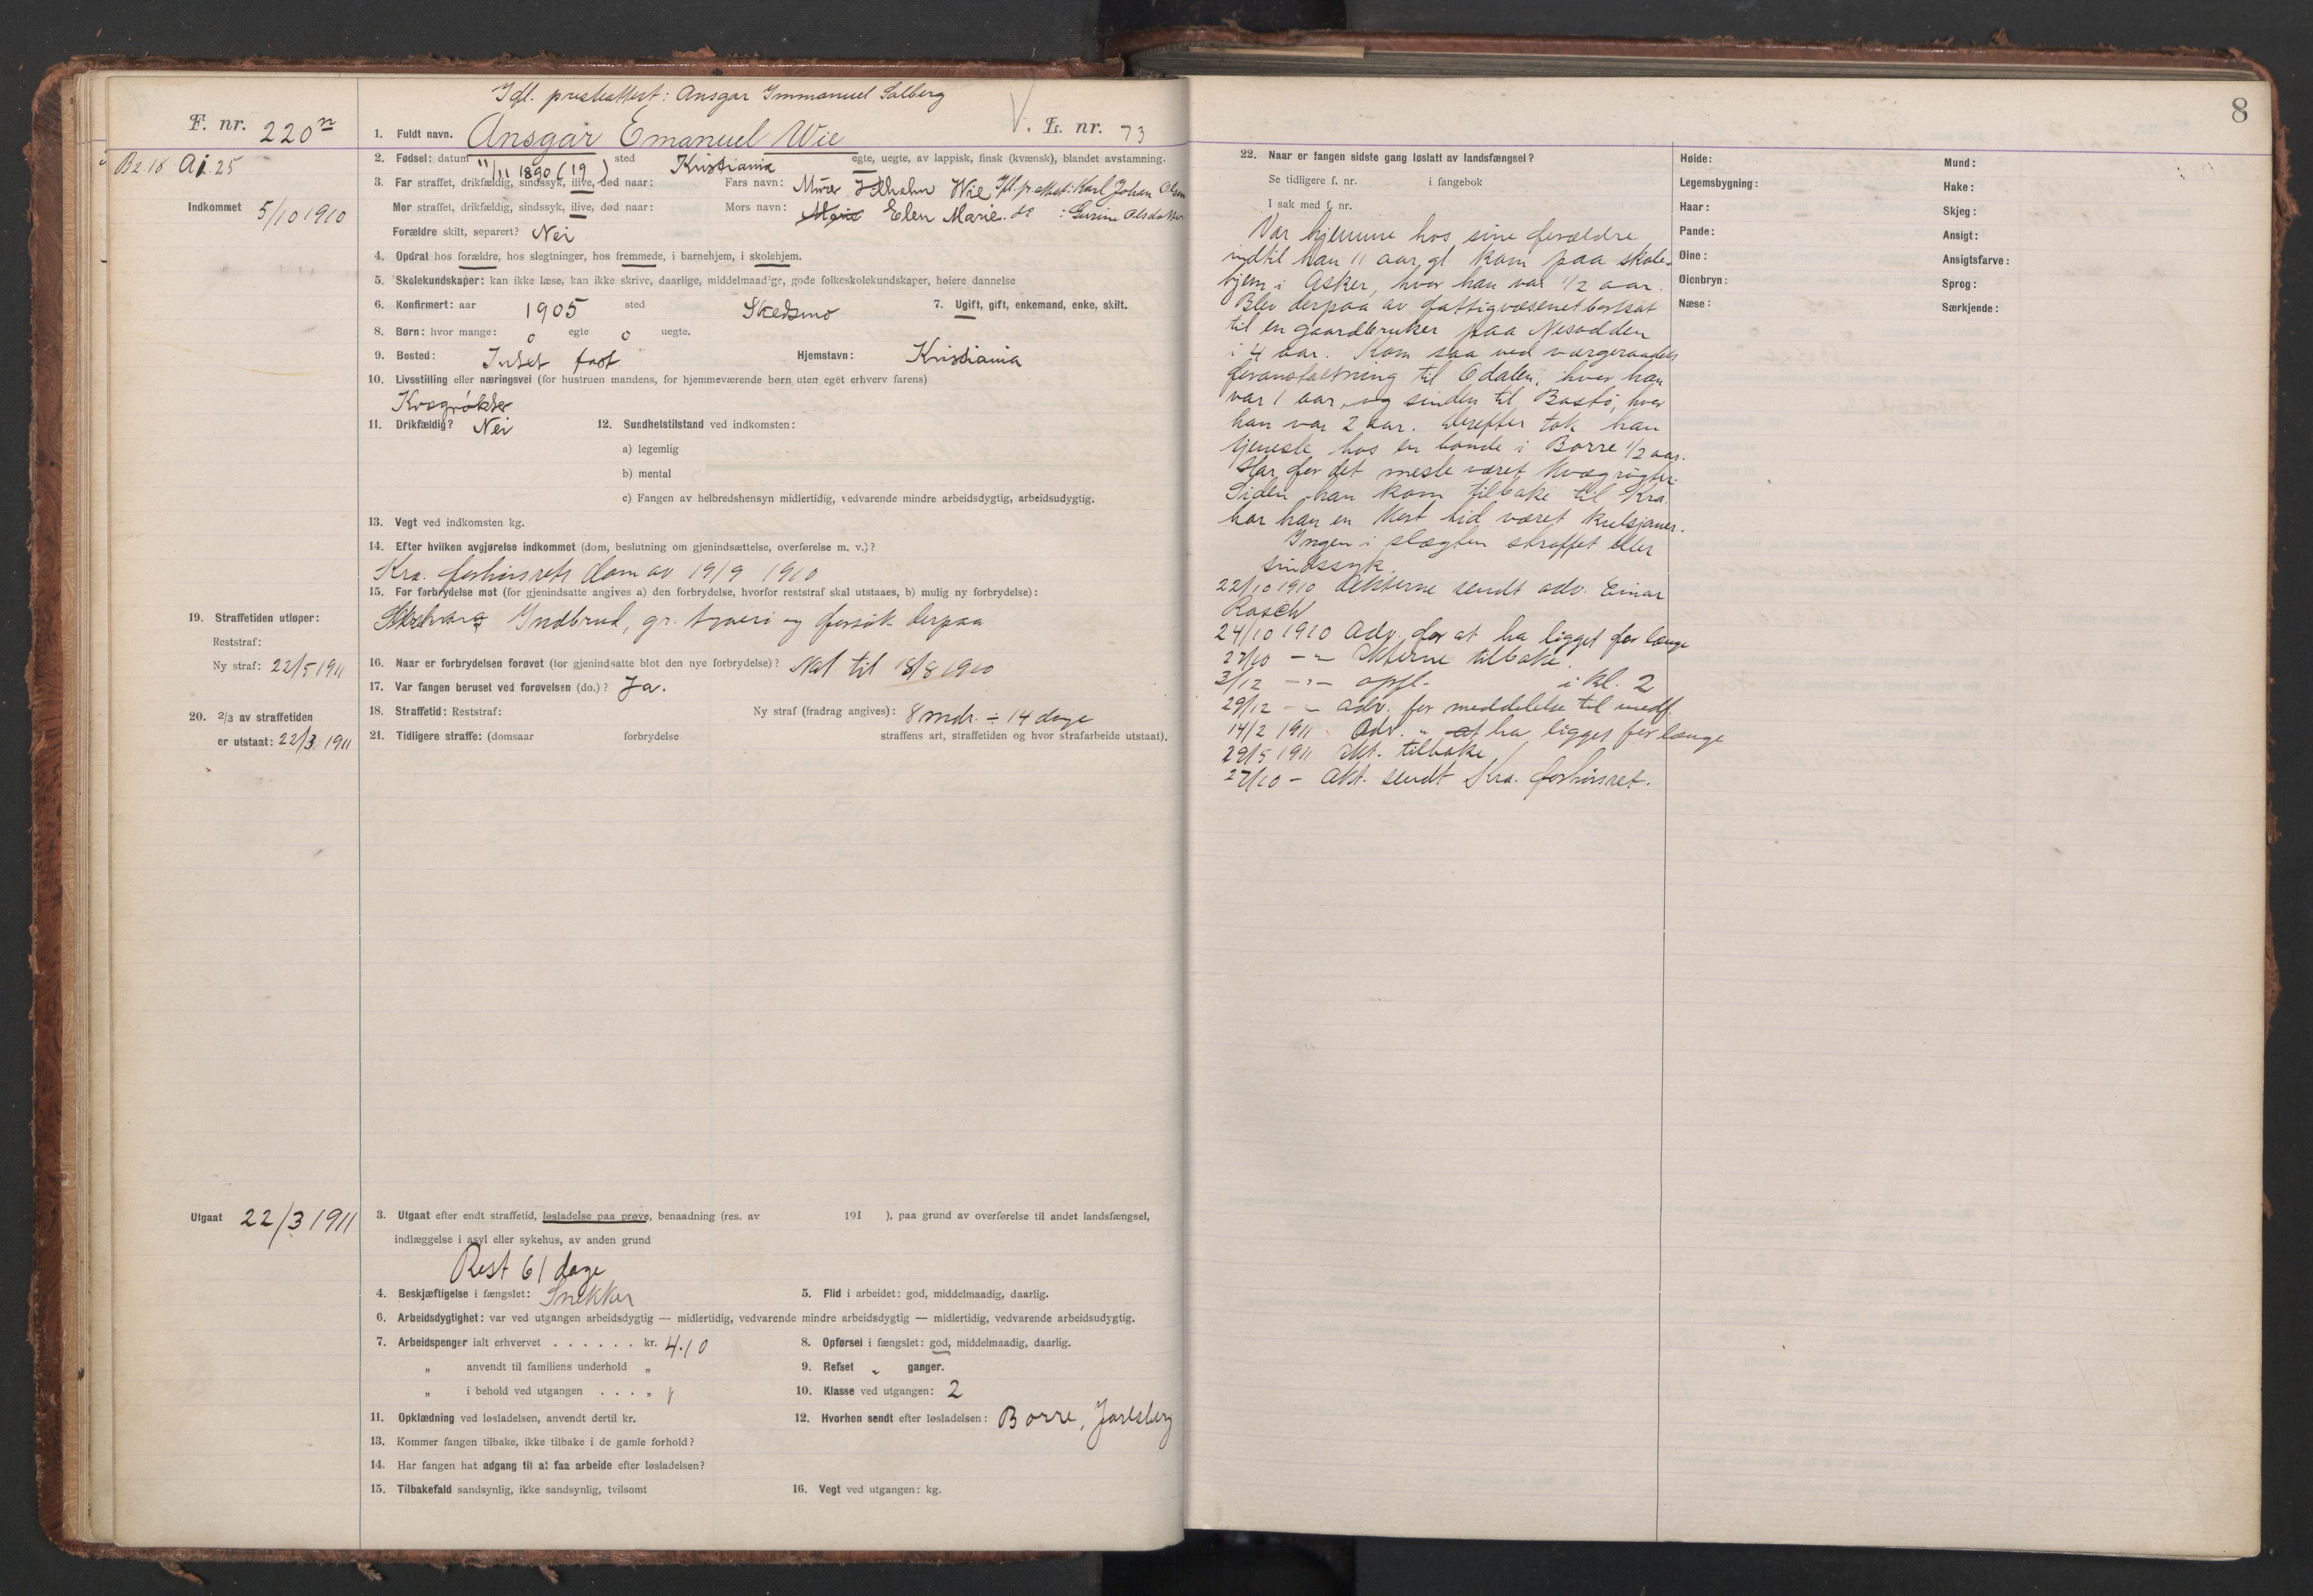 Ifl. presteattest: Ansgar Immanuel Solberg
F. nr. 220
1. Fuldt navn. Ansgar Emanuel Wie
L. nr. 73
B2.18 Ai.25
2. Fødsel: datum 11/11 1890 (19) sted Kristiania egte, uegte, av lappisk, finsk (kvænsk), blandet avstamning.
3. Far straffet, drikfældig, sindssyk, ilive, død naar: Fars navn: Murer Vilhelm Wie Ifl. pr.attest: Karl Johan Olsen
Indkommet 5/10 1910
Mor straffet, drikfældig, sindssyk, ilive, død naar: Mors navn: Marie Elen Marie. do : Gurine Olsdatter
Forældre skilt, separert? Nei
4. Opdrat hos forældre, hos slegtninger, hos fremmede, i barnehjem, i skolehjem.
5. Skolekundskaper: kan ikke læse, kan ikke skrive, daarlige, middelmaadige, gode folkeskolekundskaper, høiere dannelse
6. Konfirmert: aar 1905 sted Skedsmo 7. Ugift, gift, enkemand, enke, skilt.
8. Børn: hvor mange: 0 egte 0 uegte.
9. Bosted: Intet fast Hjemstavn: Kristiania
10. Livsstilling eller næringsvei (for hustruen mandens, for hjemmeværende børn uten eget erhverv farens)
Kvægrøkter
11. Drikfældig? Nei 12. Sundhetstilstand ved indkomsten:
a) legemlig
b) mental
c) Fangen av helbredshensyn midlertidig, vedvarende mindre arbeidsdygtig, arbeidsudygtig.
13. Vegt ved indkomsten kg.
14. Efter hvilken avgjørelse indkommet (dom, beslutning om gjenindsættelse, overførelse m. v.)?
Kra. forhørsrets dom av 19/9 1910
15. For forbrydelse mot (for gjenindsatte angives a) den forbrydelse, hvorfor reststraf skal utstaaes, b) mulig ny forbrydelse):
Indbrud, gr. tyveri og forsøk derpaa
19. Straffetiden utløper:
Reststraf:
Ny straf: 22/5 1911
16. Naar er forbrydelsen forøvet (for gjenindsatte blot den nye forbrydelse)? Nat til 18/8 1910
17. Var fangen beruset ved forøvelsen (do.)? Ja.
18. Straffetid: Reststraf: Ny straf (fradrag angives): 8 mdr. ÷ 14 dage
20. 2/3 av straffetiden
er utstaat: 22/3 1911
21. Tidligere straffe: (domsaar forbrydelse straffens art, straffetiden og hvor strafarbeide utstaat).
Utgaat 22/3 1911
3. Utgaat efter endt straffetid, løsladelse paa prøve, benaadning (res. av 191 ), paa grund av overførelse til andet landsfængsel,
indlæggelse i asyl eller sykehus, av anden grund
Rest 61 dage
4. Beskjæftigelse i fængslet: Snekker 5. Flid i arbeidet: god, middelmaadig, daarlig.
6. Arbeidsdygtighet: var ved utgangen arbeidsdygtig — midlertidig, vedvarende mindre arbeidsdygtig — midlertidig, vedvarende arbeidsudygtig.
7. Arbeidspenger ialt erhvervet . . . . . . kr. 4.10 8. Opførsel i fængslet: god, middelmaadig, daarlig.
„ anvendt til familiens underhold „ 9. Refset „ ganger.
„ i behold ved utgangen . . . „ 10. Klasse ved utgangen: 2
11. Opklædning ved løsladelsen, anvendt dertil kr. 12. Hvorhen sendt efter løsladelsen: Borre, Jarlsberg
13. Kommer fangen tilbake, ikke tilbake i de gamle forhold?
14. Har fangen hat adgang til at faa arbeide efter løsladelsen?
15. Tilbakefald sandsynlig, ikke sandsynlig, tvilsomt 16. Vegt ved utgangen: kg.
8
22. Naar er fangen sidste gang løslatt av landsfængsel?
Se tidligere f. nr. i fangebok
I sak med f. nr.
Var hjemme hos sine forældre
indtil han 11 aar gl. kom paa skole-
hjem i Asker, hvor han var 1/2 aar.
Blev derpaa av fattigvæsenet bortsat
til en gaardbruker paa Nesodden
i 4 aar. Kom saa ved værgeraadets
foranstaltning til Odalen, hvor han
var 1 aar, og siden til Bastø, hvor
han var 2 aar. Derefter tok han
tjeneste hos en bonde i Borre 1/2 aar.
Har for det meste været kvægrøgter.
Siden han kom tilbake til Kra.
har han en kort tid været kulsjauer.
Ingen i slægten straffet eller
sindssyk.
22/10 1910 Akterne sendt adv. Einar
Rosch
24/10 1910 Adv. for at ha ligget for længe
27/10 -"- Akterne tilbake.
3/12 -"- opfl. i kl. 2
29/12 -"- adv. for meddelelse til medf.
14/2 1911 Adv. " at ha ligget for længe
29/5 1911 Akt. tilbake
27/10 - Akt. sendt Kra. forhørsret.
Høide:
Legemsbygning:
Haar:
Pande:
Øine:
Øienbryn:
Næse:
Mund:
Hake:
Skjeg:
Ansigt:
Ansigtsfarve:
Sprog:
Særkjende: